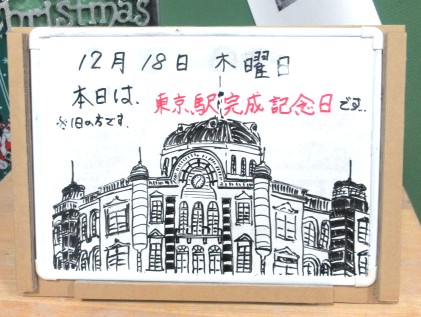 Christmas
12月18日 木曜日
本日は、東京駅完成記念日です。
※旧の方です。